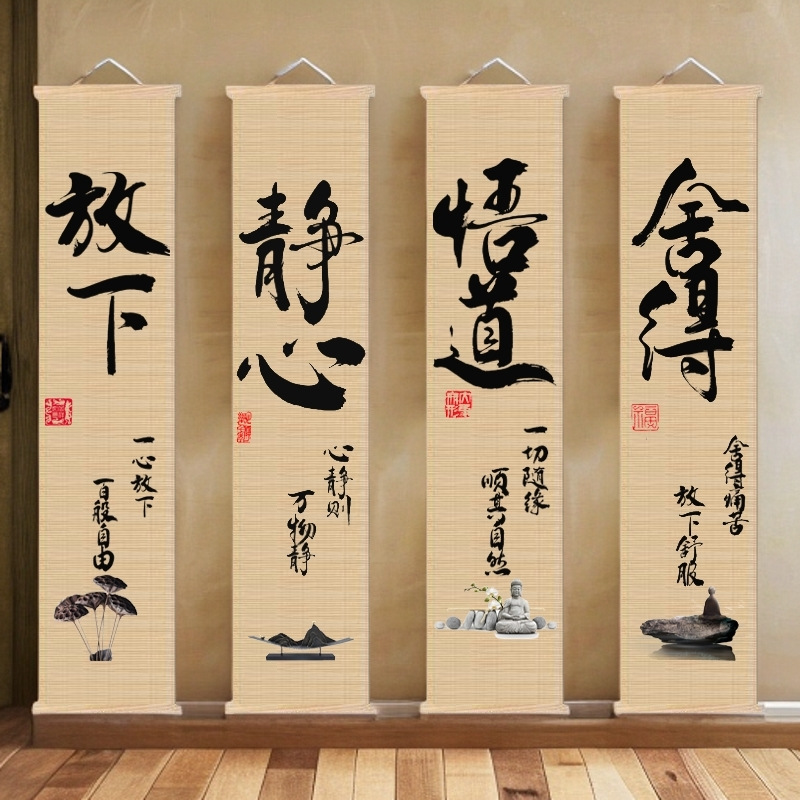 放下
一心放下
百般自由
静心
心静则
万物静
悟道
一切随缘
顺其自然
舍得
舍得痛苦
放下舒服